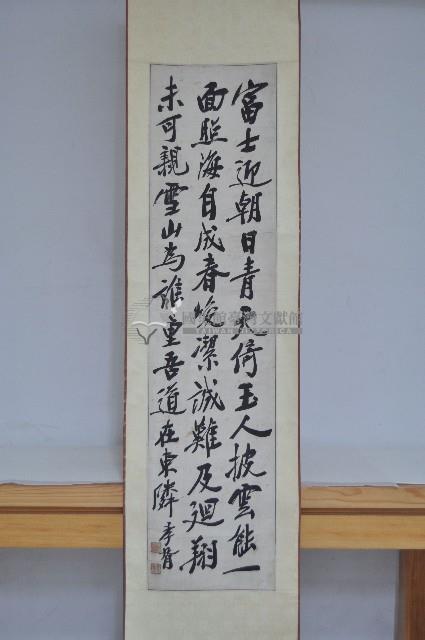 富士迎朝日青天倚玉人披雲能一
面照海自成春皎潔誠難及廻翔
未可親雪山為誰重吾道在東隣 孝胥
國史館臺灣文獻館
TAIWAN HISTORICA